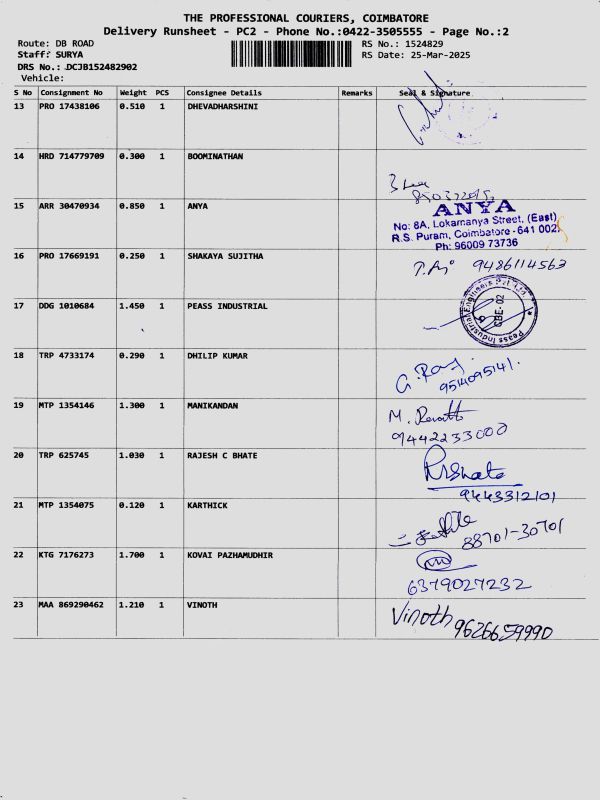 THE PROFESSIONAL COURIERS, COIMBATORE
Delivery Runsheet - PC2 - Phone No.:0422-3505555 - Page No.:2
Route: DB ROAD RS No.: 1524829
Staff: SURYA RS Date: 25-Mar-2025
DRS No.: DCJB152482902
Vehicle:
S No Consignment No Weight PCS Consignee Details Remarks Seal & Signature
13 PRO 17438106 0.510 1 DHEVADHARSHINI
14 HRD 714779709 0.300 1 BOOMINATHAN
15 ARR 30470934 0.850 1 ANYA
ANYA
No: 8A, Lokamanya Street, (East)
R.S. Puram, Coimbatore - 641 002.
Ph: 96009 73736
16 PRO 17669191 0.250 1 SHAKAYA SUJITHA
9486114563
17 DDG 1010684 1.450 1 PEASS INDUSTRIAL
Peass Industrial Engineers Pvt. Ltd.
CBE- 02
18 TRP 4733174 0.290 1 DHILIP KUMAR
9514095141.
19 MTP 1354146 1.300 1 MANIKANDAN
M.
9442233000
20 TRP 625745 1.030 1 RAJESH C BHATE
RBhate
9443312101
21 MTP 1354075 0.120 1 KARTHICK
88701-30701
22 KTG 7176273 1.700 1 KOVAI PAZHAMUDHIR
6379027232
23 MAA 869290462 1.210 1 VINOTH
Vinoth 9626659990